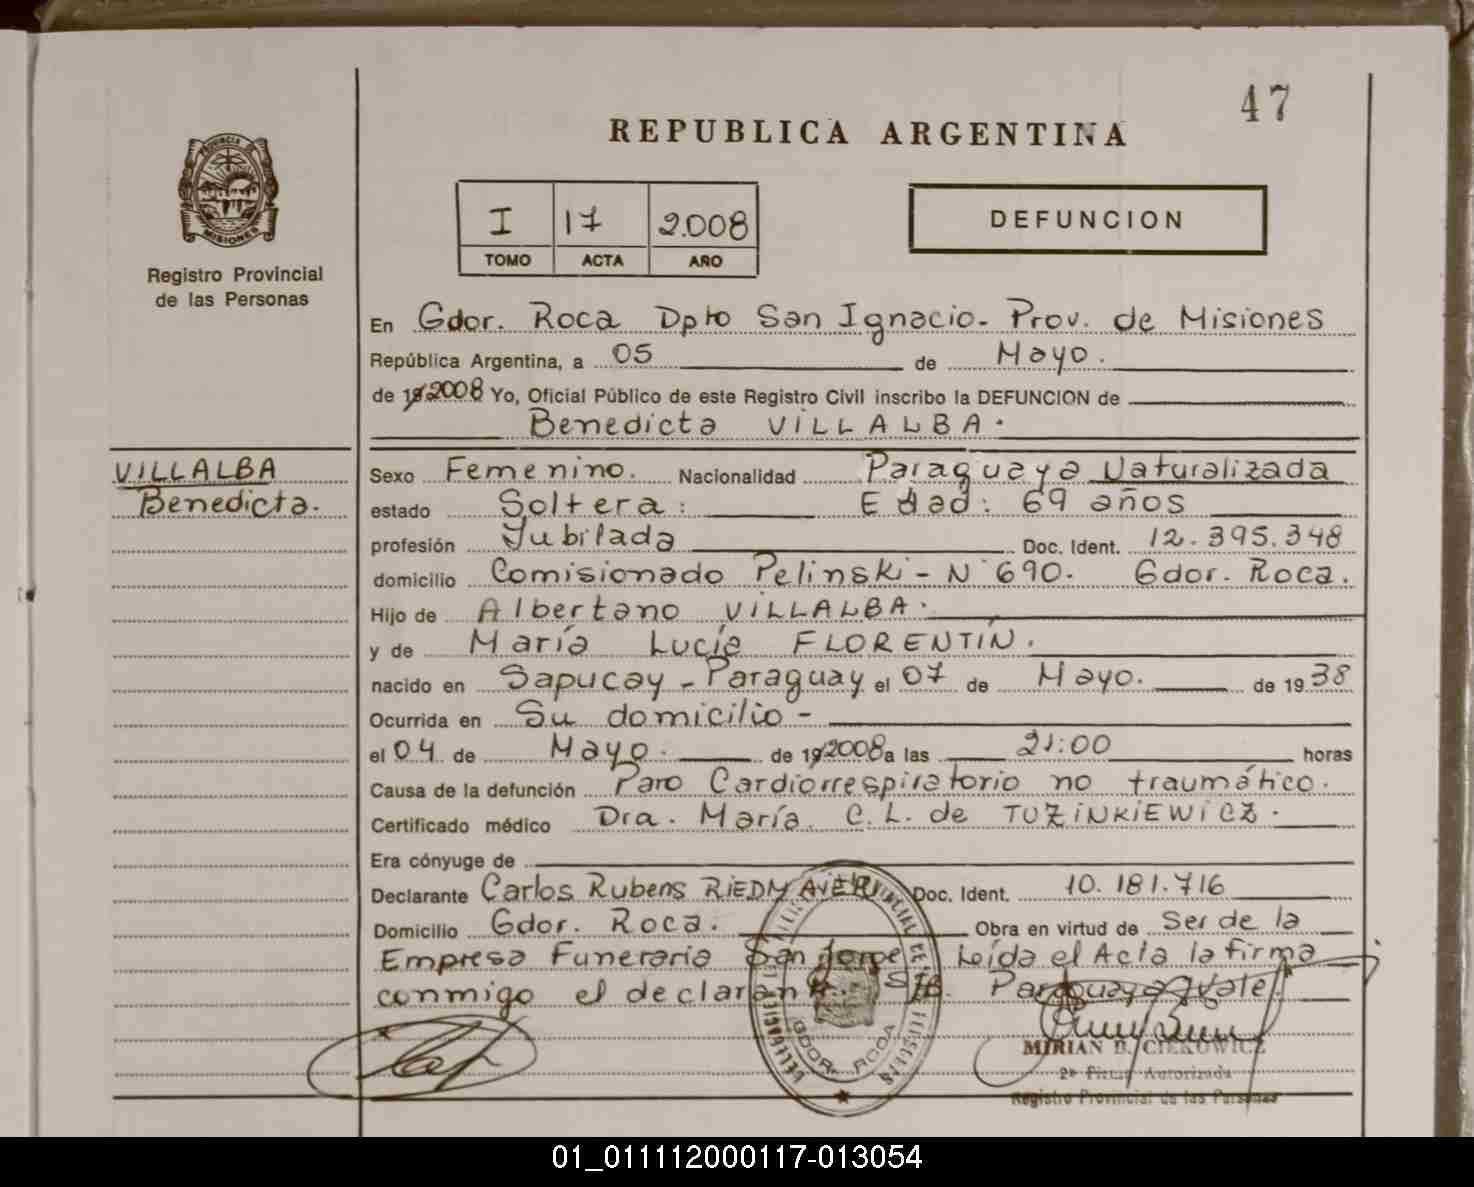 47
REPUBLICA ARGENTINA
PROVINCIA DE
MISIONES
Registro Provincial
de las Personas
I 17 2.008
TOMO ACTA AÑO
DEFUNCION
En Gdor. Roca Dpto San Ignacio - Prov. de Misiones
República Argentina, a 05 de Mayo.
de 19 2008 Yo, Oficial Público de este Registro Civil inscribo la DEFUNCION de
Benedicta VILLALBA.
VILLALBA
Benedicta.
Sexo Femenino. Nacionalidad Paraguaya Naturalizada
estado Soltera: Edad: 69 años
profesión Jubilada Doc. Ident. 12.395.348
domicilio Comisionado Pelinski - N° 690. Gdor. Roca.
Hijo de Albertano VILLALBA.
y de María Lucía FLORENTÍN.
nacido en Sapucay - Paraguay el 07 de Mayo. de 19 38
Ocurrida en Su domicilio -
el 04 de Mayo. de 19 2008 a las 21:00 horas
Causa de la defunción Paro Cardiorrespiratorio no traumático.
Certificado médico Dra. María C. L. de TUZINKIEWICZ.
Era cónyuge de
Declarante Carlos Rubens RIEDMAYER Doc. Ident. 10.181.716
Domicilio Gdor. Roca. Obra en virtud de Ser de la
Empresa Funeraria San Jorge Leída el Acta la firma
conmigo el declarante. S/B. Paraguaya Vale.
GDOR. ROCA
MIRIAN B. CIEKOWICZ
2ª Firma Autorizada
Registro Provincial de las Personas
01_011112000117-013054